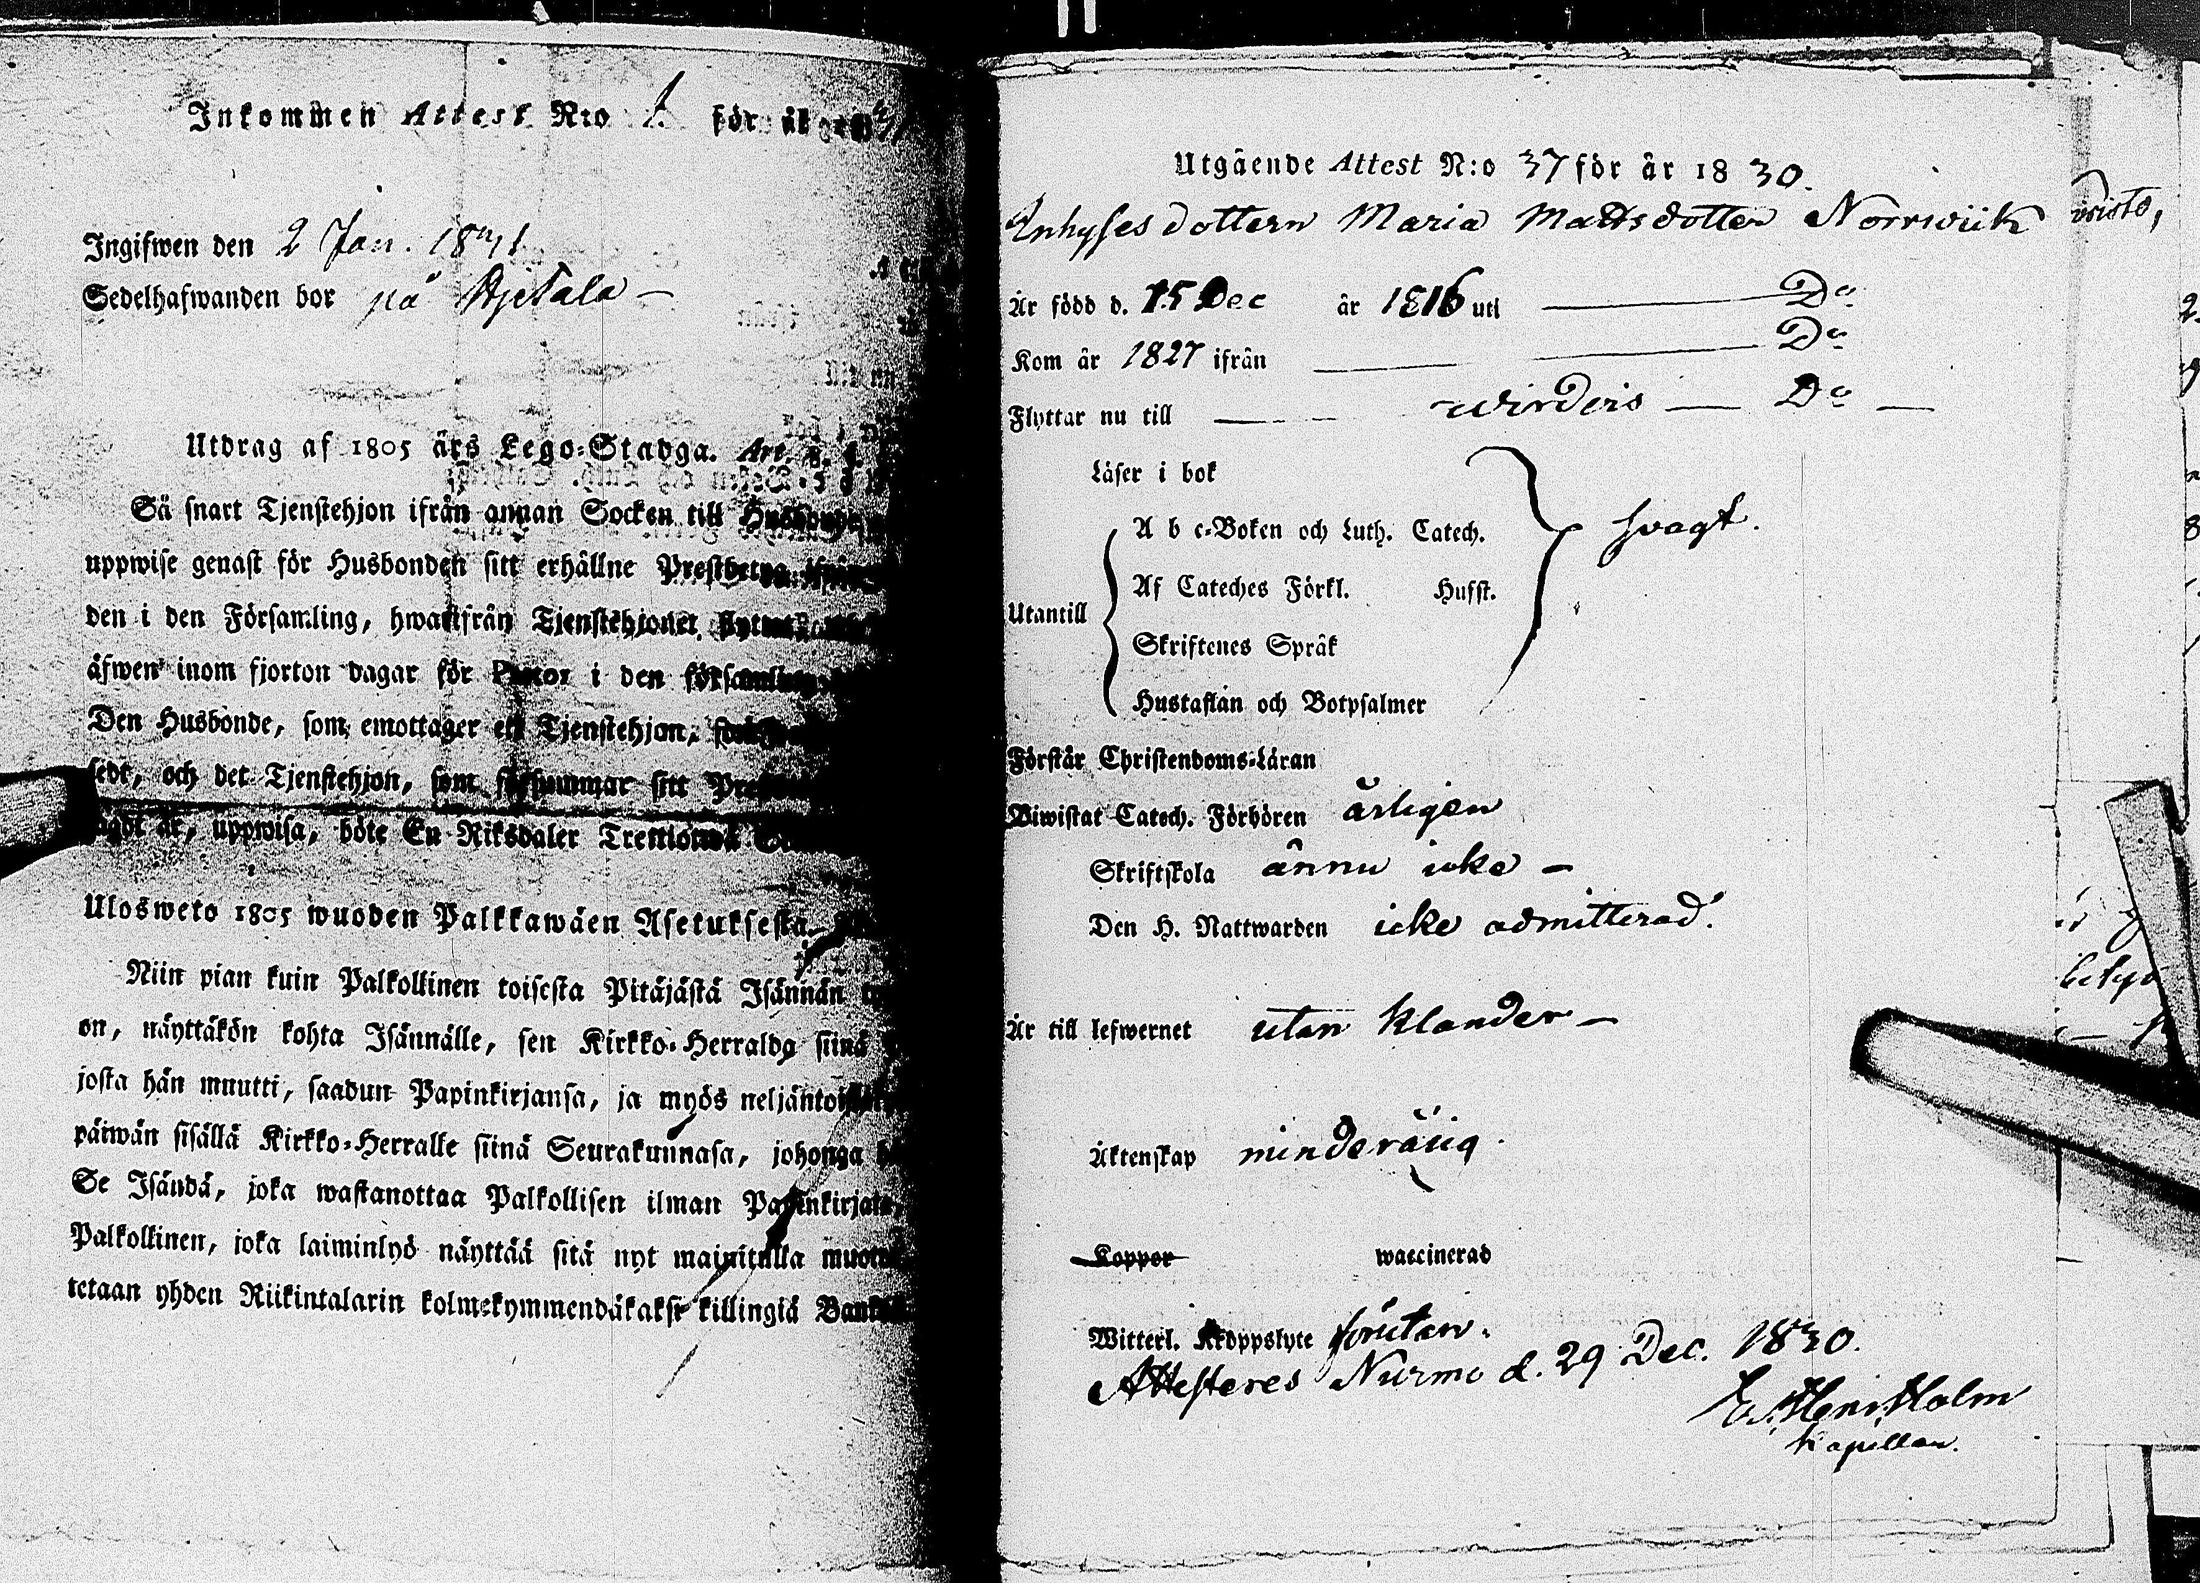 Inkommen Attest N:o 1. för år
Ingifwen den 2 Jan. 1831
Sedelhafwanden bor på
Utdrag af 1805 års Lego-Stadga. Art. 8.
Så snart Tjenstehjon ifrån annan Socken till
uppwise genast för Husbonden sitt erhållne
den i den Församling, hwarifrån Tjenstehjonet
äfwen inom fjorton dagar för Pastor i den församling
Den Husbonde, som emottager ett Tjenstehjon,
sedt, och det Tjenstehjon, som försummar sitt
sagdt är, uppwisa, böte En Riksdaler Trettiotwå
Ulosweto 1805 wuoden Palkkawäen Asetuksesta.
Niin pian kuin Palkollinen toisesta Pitäjästä Isännän
on, näyttäkön kohta Isännälle, sen Kirkko-Herralda siinä
josta hän muutti, saadun Papinkirjansa, ja myös
päiwän sisällä Kirkko-Herralle siinä Seurakunnasa, johonga
Se Isändä, joka wastanottaa Palkollisen ilman Papinkirjata,
Palkollinen, joka laiminlyö näyttää sitä nyt mainitulla
tetaan yhden Riikintalarin kolmekymmendäkaksi killingiä
Utgående Attest N:o 37 för år 1830.
Inhyses dottern Maria Mattsdotter Norrwiik
Är född d. 15 Dec år 1816 uti — Do
Kom år 1827 ifrån — Do
Flyttar nu till — — — Do —
Läser i bok
A b c-Boken och Luth. Catech. svagt.
Af Cateches Förkl. Hufst.
Utantill
Skriftenes Språk
Hustaflan och Botpsalmer
Förstår Christendoms-Läran
Biwistat Catech. Förhören årligen
Skriftskola ännu icke —
Den H. Nattwarden icke admitterad.
Är till lefwernet utan klander —
Äktenskap minderårig.
Koppor waccinerad
Witterl. Kroppslyte förutan.
Attesteres Nurmo d. 29 Dec. 1830.
Holm
Kapellan.